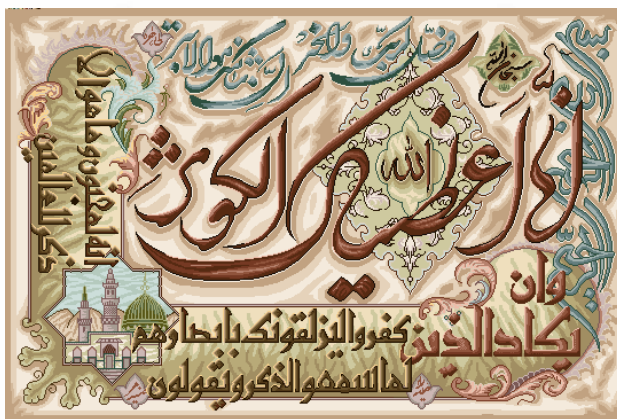 بسم الله الرحمن الرحیم
انا اعطیناک الکوثر
فصل لربک وانحر
ان شانئک هو الابتر
الله
وان
یکاد الذین
کفروا لیزلقونک بابصارهم
لما سمعوا الذکر و یقولون
انه لمجنون و ما هو الا
ذکر للعالمین